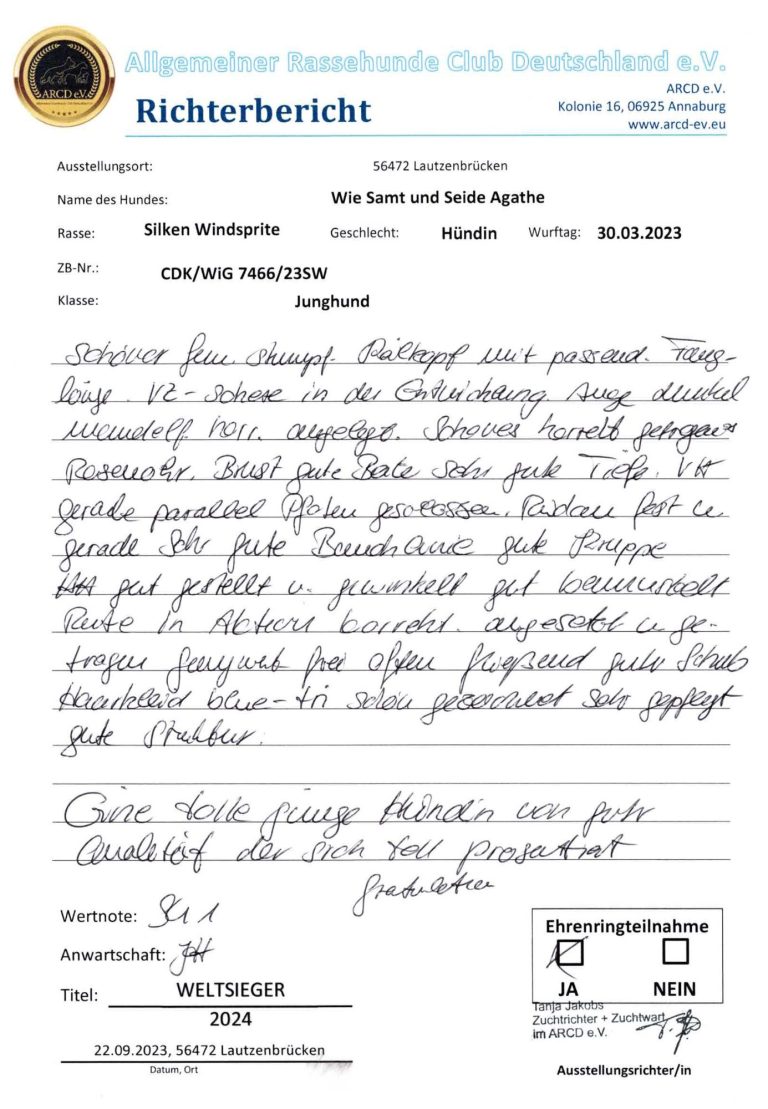 ARCD e.V.
Allgemeiner Rassehunde Club Deutschland e.V.
ARCD e.V.
Richterbericht
Kolonie 16, 06925 Annaburg
www.arcd-ev.eu
Ausstellungsort: 56472 Lautzenbrücken
Name des Hundes: Wie Samt und Seide Agathe
Rasse: Silken Windsprite Geschlecht: Hündin Wurftag: 30.03.2023
ZB-Nr.: CDK/WiG 7466/23SW
Klasse: Junghund
Schöner fem. stumpf. Keilkopf mit passend. Fang-
länge. VZ-Schere in der Entwicklung. Auge dunkel
mandelf. korr. angelegt. Schönes korrekt getragenes
Rosenohr. Brust gute Breite sehr gute Tiefe. VH
gerade parallel Pfoten geschlossen. Rücken fest u
gerade Sehr gute Bauchlinie gute Kruppe
HH gut gestellt u. gewinkelt gut bemuskelt
Rute in Aktion korrekt. angesetzt u ge-
tragen Gangwerk frei offen fließend guter Schub
Haarkleid blue-tri schön gezeichnet sehr gepflegt
gute Struktur.
Eine tolle junge Hündin von guter
Qualität der sich toll präsentiert
Gratulation
Wertnote: SG 1
Anwartschaft: JH
Titel: WELTSIEGER
2024
22.09.2023, 56472 Lautzenbrücken
Datum, Ort
Ehrenringteilnahme
JA NEIN
Tanja Jakobs
Zuchtrichter + Zuchtwart
im ARCD e.V.
Ausstellungsrichter/in